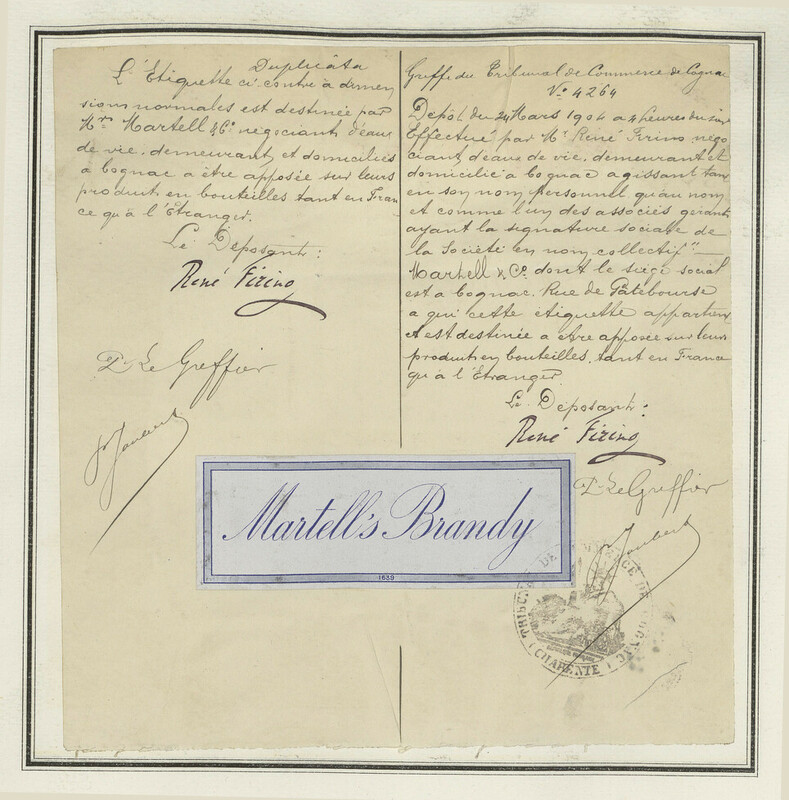 Duplicata
L'Etiquette ci contre à dimen
sions normales est destinée par
Mrs Martell & Co négociants d'eaux
de vie, demeurant et domiciliés
à Cognac a être apposée sur leurs
produits en bouteilles tant en Fran
ce qu'à l'Etranger.
Le Déposant:
René Firino
Pr Le Greffier
Greffe du Tribunal de Commerce de Cognac
No 4264
Dépôt du 24 Mars 1904 a 4 heures du soir
Effectué par Mr René Firino négo
ciant d'eaux de vie, demeurant et
domicilié a Cognac agissant tant
en son nom personnel qu'au nom
et comme l'un des associés gérants
ayant la signature sociale de
la Société en nom collectif "
Martell & Co. dont le siège social
est a Cognac, Rue de Gâtebourse
a qui cette étiquette appartient
et est destinée a être apposée sur leurs
produits en bouteilles, tant en France
qu'à l'Etranger.
Le Déposant:
René Firino
Pr Le Greffier
Martell's Brandy
1639
TRIBUNAL DE COMMERCE DE COGNAC
CHARENTE